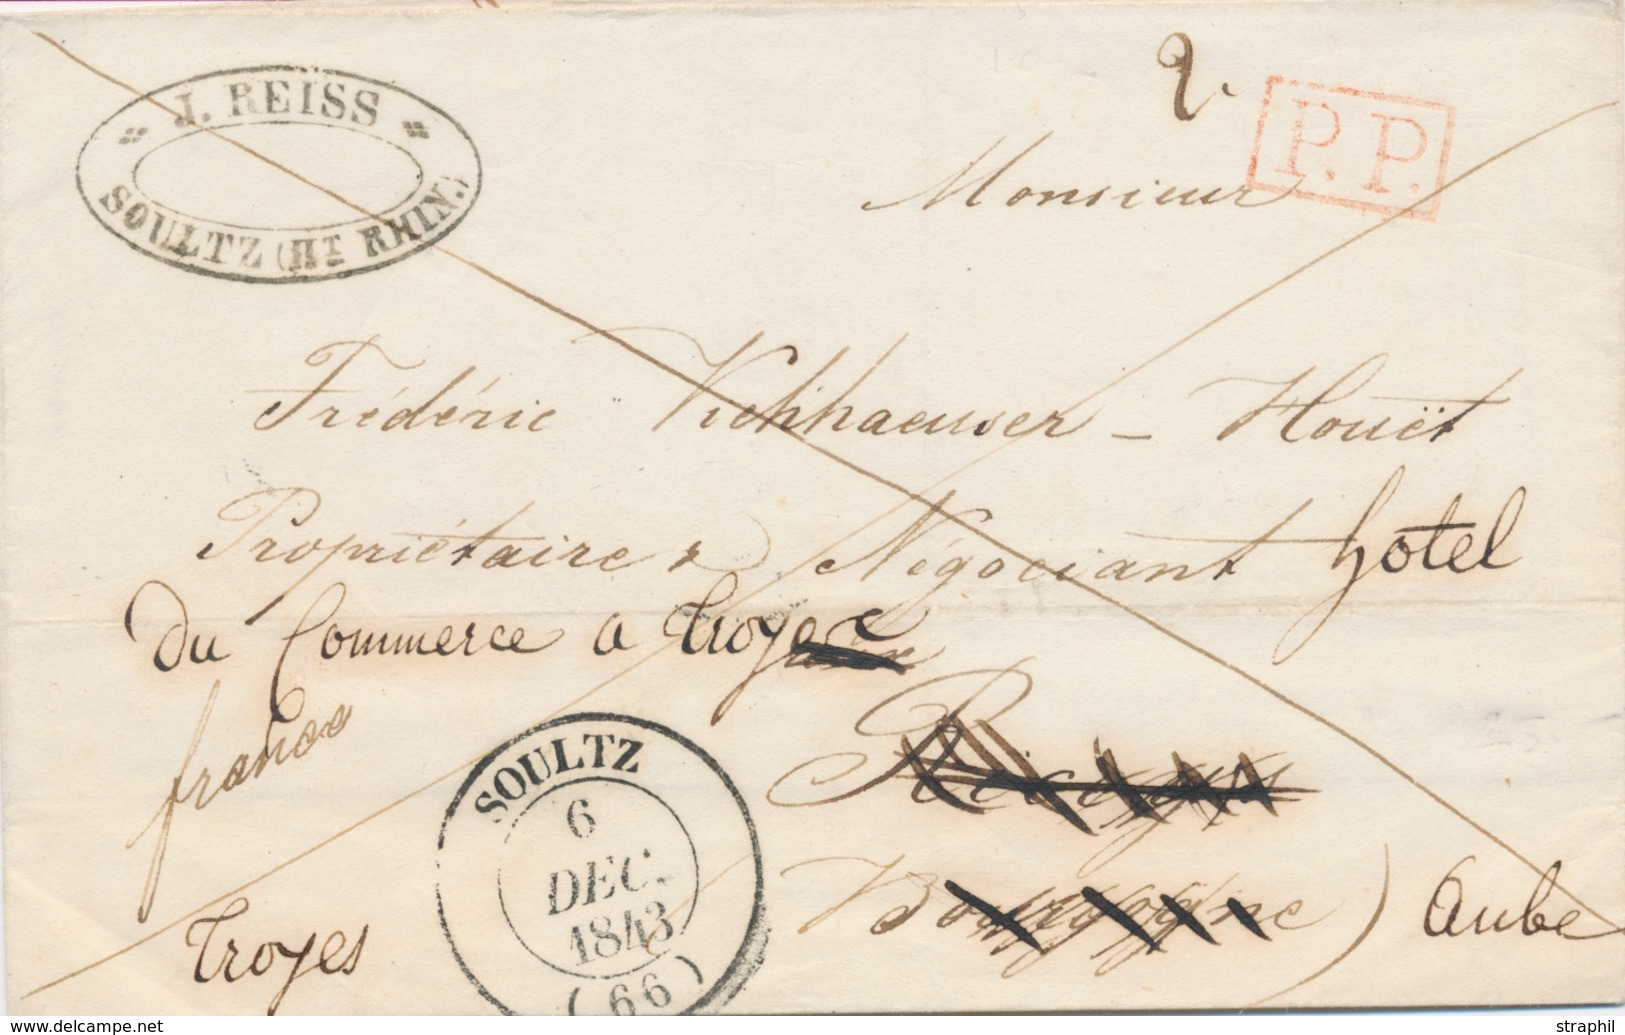 J. REISS
SOULTZ (HT RHIN.)
2.
P.P.
Monsieur
Frédéric Vichhaeuser - Houët
Propriétaire & Négociant hotel
Du Commerce a Troyes
france
SOULTZ
6
DEC.
1843
(66)
Bourgogne) Aube
Troyes
www.delcampe.net
straphil